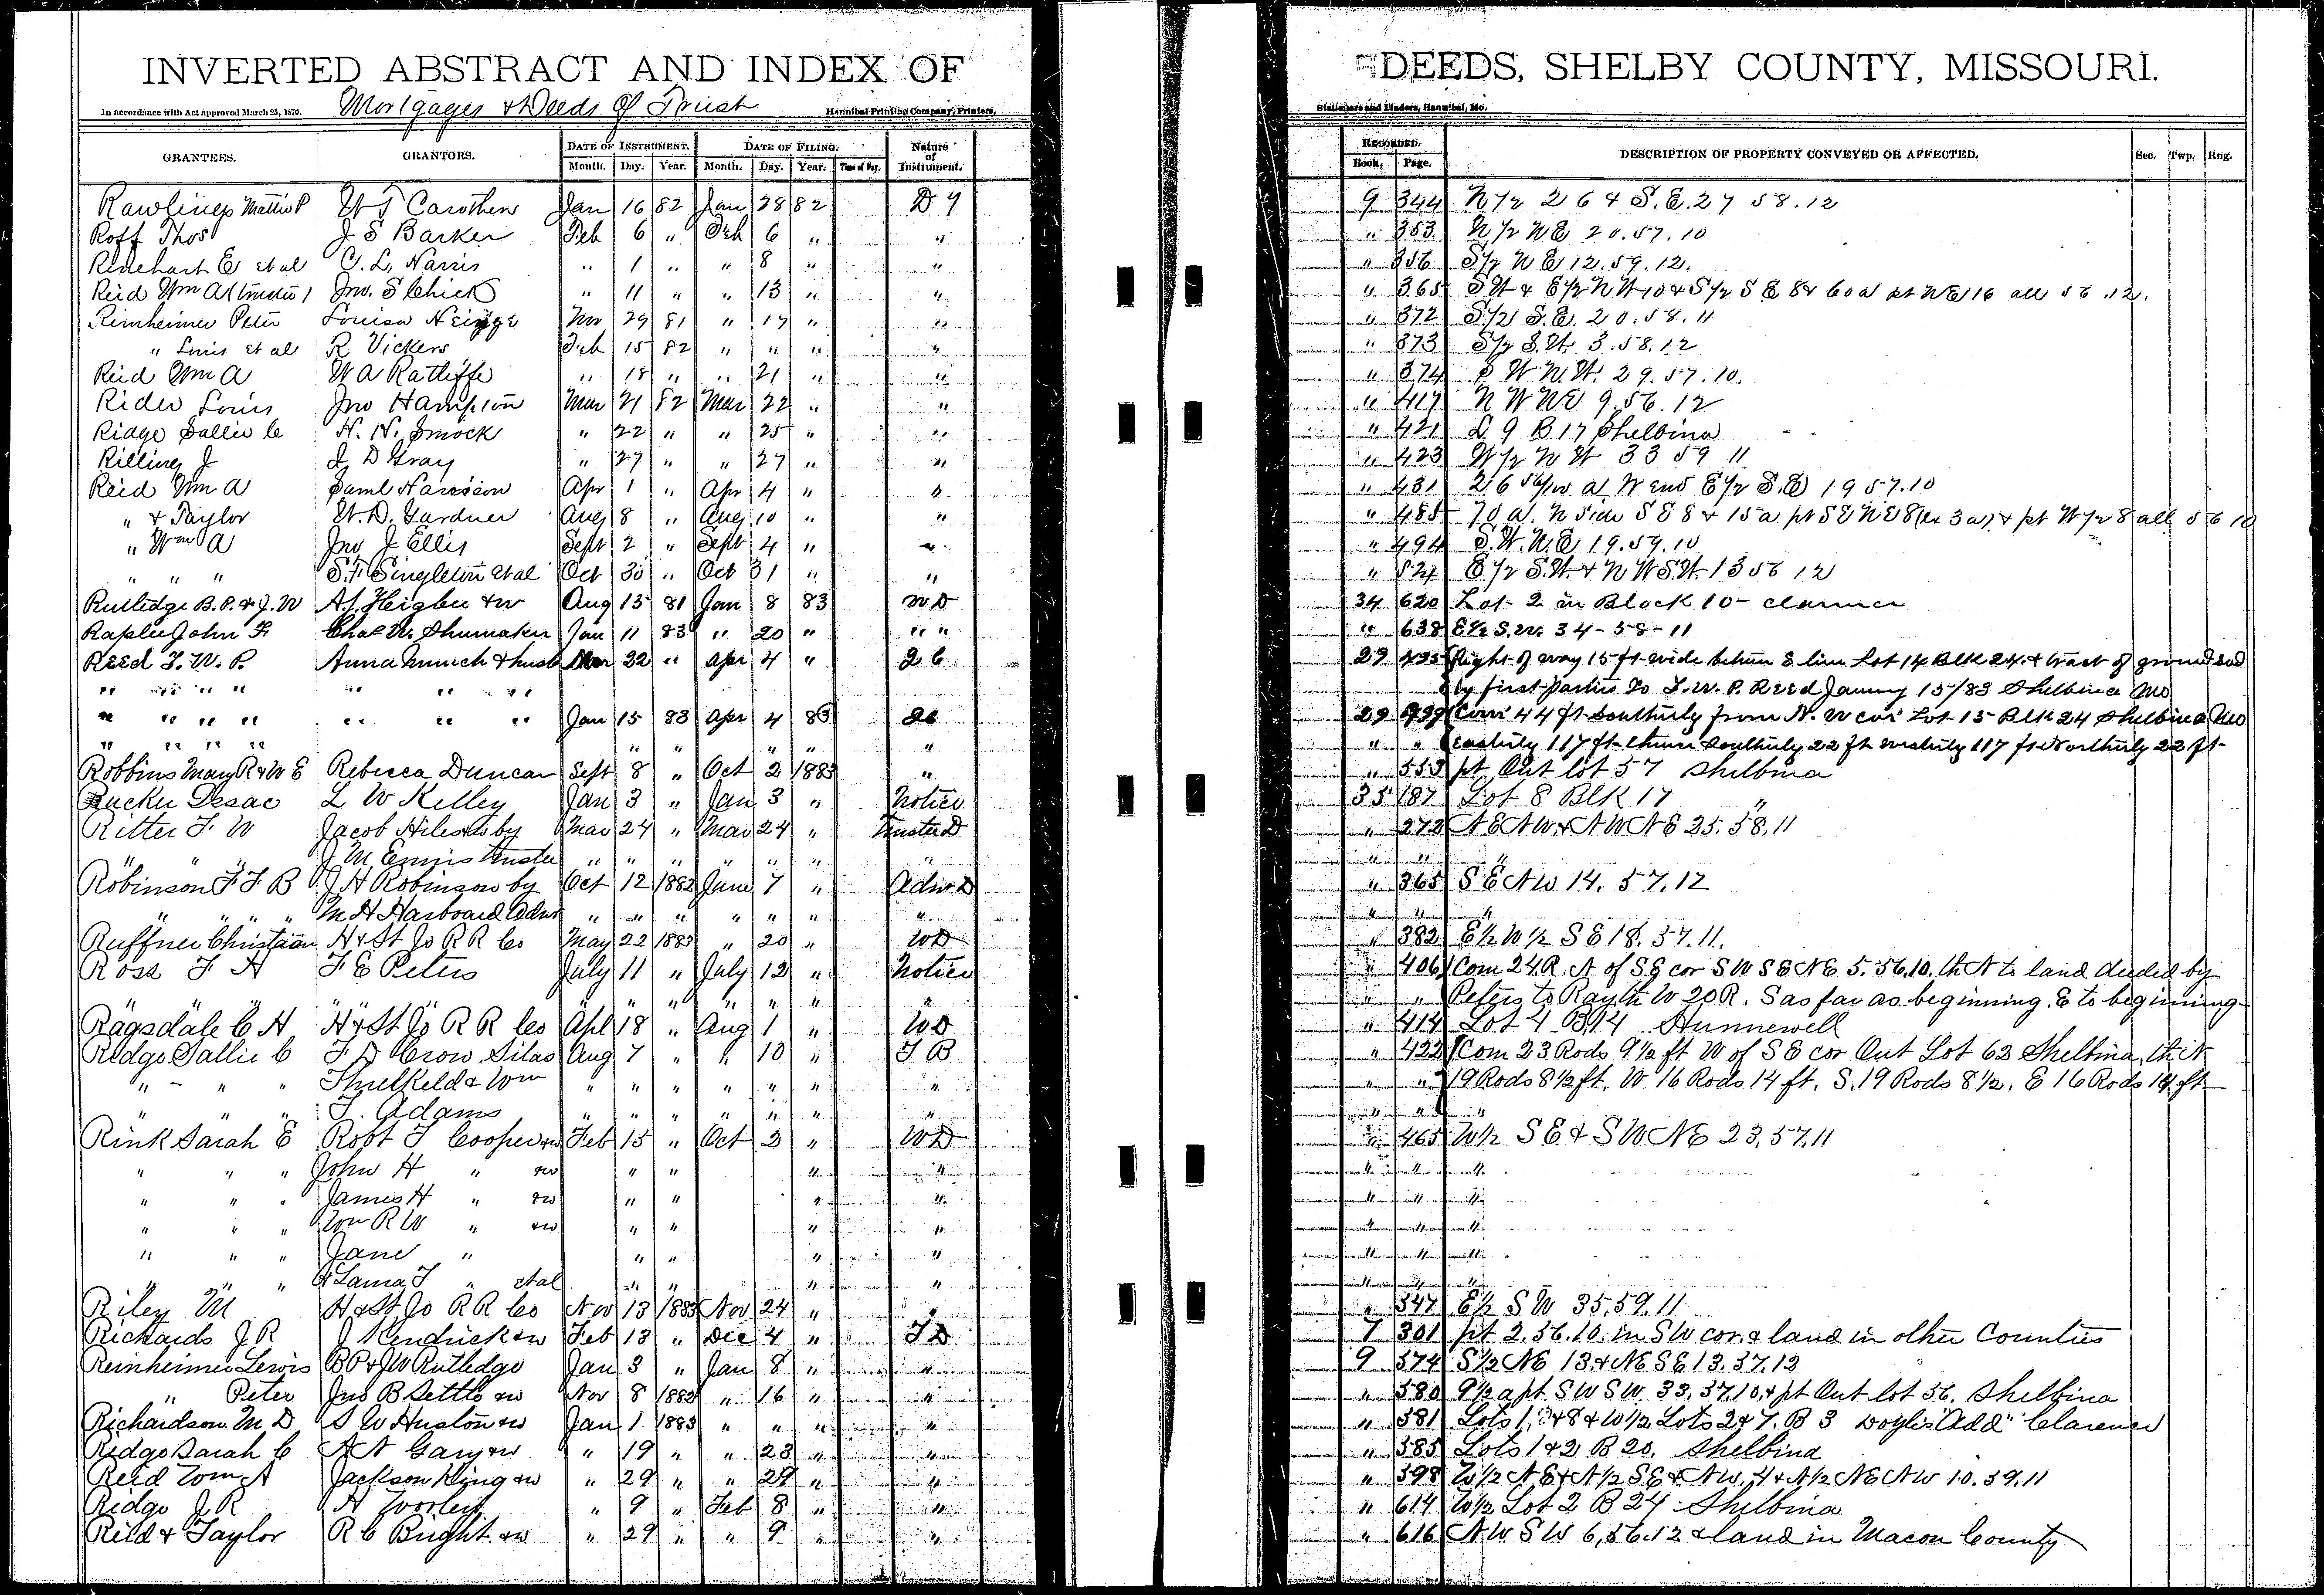 INVERTED ABSTRACT AND INDEX OF DEEDS, SHELBY COUNTY, MISSOURI.
In accordance with Act approved March 25, 1870. Mortgages & Deeds of Trust Hannibal Printing Company, Printers, Stationers and Binders, Hannibal, Mo.
GRANTEES. GRANTORS. DATE OF INSTRUMENT. DATE OF FILING. Nature of Instrument. RECORDED. DESCRIPTION OF PROPERTY CONVEYED OR AFFECTED. Sec. Twp. Rng.
Month. Day. Year. Month. Day. Year. Time of Day. Book. Page.
Rawlings Mattie P W T Carothers Jan 16 82 Jan 28 82 D 9 344 N 1/2 26 & S.E. 27 58.12
Roff Thos J S Barker Feb 6 " Feb 6 " " " 353 N 1/2 NE 20.57.10
Rinehart E et al C. L. Harris " 1 " " 8 " " " 356 S 1/2 N E 12.59.12.
Reid Wm A (trustee) Jno. S Chick " 11 " " 13 " " " 365 S W & E 1/2 N W 10 & S 1/2 S E 8 & 60 a pt NE 16 all 56.12.
Rinheimer Peter Louisa Nov 29 81 " 17 " " " 372 S 1/2 S.E. 20.58.11
" Louis et al R Vickers Feb 15 82 " " " " " 373 S 1/2 S.W. 3.58.12
Reid Wm A W A Ratliffe " 18 " " 21 " " " 374 S W N.W. 29.57.10.
Rider Louis Jno Hampton Mar 21 82 Mar 22 " " " 417 N W NE 9.56.12
Ridge Sallie C H. H. Smock " 22 " " 25 " " " 421 L 9 B 17 Shelbina
Rilling J J D Gray " 27 " " 27 " " " 423 W 1/2 N W 33 59 11
Reid Wm A Saml Harrison Apr 1 " Apr 4 " " " 431 26 56/100 a. W end E 1/2 S.E 19 57.10
" & Taylor W. D. Gardner Aug 8 " Aug 10 " " " 485 70 a. N side S E 8 & 15 a. pt S E N E 8 (ex 3 a) & pt W 1/2 8 all 56 10
" Wm A Jno J Ellis Sept 2 " Sept 4 " " " 494 S.W. N.E 19.59.10
" " " S. F. Singleton et al Oct 30 " Oct 31 " " " 524 E 1/2 S.W. & N W S.W. 13 56 12
Rutledge B.P. & J.W A. J. Higbee & w Aug 15 81 Jan 8 83 W D 34 620 Lot 2 in Block 10 - Clarence
Raplee John F Chas W. Shumaker Jan 11 83 " 20 " " " " 638 E 1/2 S.W. 34-58-11
Reed J. W. P. Anna Munch & husb Mar 22 " Apr 4 " 2 C 29 435 Right of way 15 ft wide between E line Lot 14 Blk 24 & tract of ground sold
" " " " " " " by first parties to J. W. P. Reed January 15/83 Shelbina Mo
" " " " " " " Jan 15 83 Apr 4 83 2C 29 Com 44 ft Southerly from N. W cor Lot 15 Blk 24 Shelbina Mo
" " " " " " " " " " " Easterly 117 ft thence Southerly 22 ft westerly 117 ft Northerly 22 ft
Robbins Mary R & W E Rebecca Duncan Sept 8 " Oct 2 1883 " " 553 pt Out lot 57 Shelbina
Rucker Isaac L W Kelley Jan 3 " Jan 3 " Notice 35 187 Lot 8 Blk 17 "
Ritter F W Jacob Hiles by Mar 24 " Mar 24 " Trustee D " 272 N E N W & N W N E 25.58.11
" " " J M Ennis Trustee " " " " " " " " " "
Robinson F F B J H Robinson by Oct 12 1882 June 7 " Admr D " 365 S E N W 14. 57.12
" " " " M H Harboard Admr " " " " " " " " " "
Ruffner Christian H & St Jo R R Co May 22 1883 " 20 " WD " 382 E 1/2 W 1/2 S E 18. 57.11.
Ross F H F E Peters July 11 " July 12 " Notice " 406 Com 24 R. N of S E cor S W S E N E 5.56.10. th N to land deeded by
" " " " " " " " " " " Peters to Ray th W 20 R. S as far as beginning. E to beginning
Ragsdale C H H & St Jo R R Co Apl 18 " Aug 1 " WD " 414 Lot 4 B 14 Hunnewell
Ridge Sallie C F D Crow Silas Aug 7 " " 10 " T B " 422 Com 23 Rods 9 1/2 ft W of S E cor Out Lot 62 Shelbina, th N
" - " " Threlkeld & Wm " " " " " " " " " 19 Rods 8 1/2 ft. W 16 Rods 14 ft, S. 19 Rods 8 1/2. E 16 Rods 14 ft
" " " T. Adams " " " " " " " " " "
Rink Sarah E Robt T Cooper & w Feb 15 " Oct 2 " WD " 465 W 1/2 S E & S W N E 23.57.11
" " " John H " & w " " " " " " "
" " " James H " & w " " " " " " "
" " " Wm R W " & w " " " " " " "
" " " Jane " " " " " " " "
" " " Lama T " et al " " " " " " "
Riley M H & St Jo R R Co Nov 13 1883 Nov 24 " " " 547 E 1/2 S W 35.59.11
Richards J R J Kendrick & w Feb 13 " Dec 4 " T D 7 301 pt 2.56.10. in S W cor. & land in other Counties
Reinheimer Lewis B P & J W Rutledge Jan 3 " Jan 8 " " 9 574 S 1/2 N E 13 & N E S E 13.57.12
" Peter Jno B Settle & w Nov 8 1882 " 16 " " " 580 9 1/2 a pt S W S W 33.57.10. & pt Out lot 56. Shelbina
Richardson M D S W Huston & w Jan 1 1883 " " " " " 581 Lots 1, & 8 & W 1/2 Lots 2 & 7, B 3 Doyles "Add" Clarence
Ridge Sarah C A N Gary & w " 19 " " 23 " " " 585 Lots 1 & 2 B 20, Shelbina
Reid Wm A Jackson King & w " 29 " " 29 " " " 598 W 1/2 N E & N 1/2 S E & N W, 4 & N 1/2 N E N W 10.59.11
Ridge J R H Worley " 9 " Feb 8 " " " 614 W 1/2 Lot 2 B 24 Shelbina
Reid & Taylor R C Bright & w " 29 " " 9 " " " 616 N W S W 6,56.12 & land in Macon County